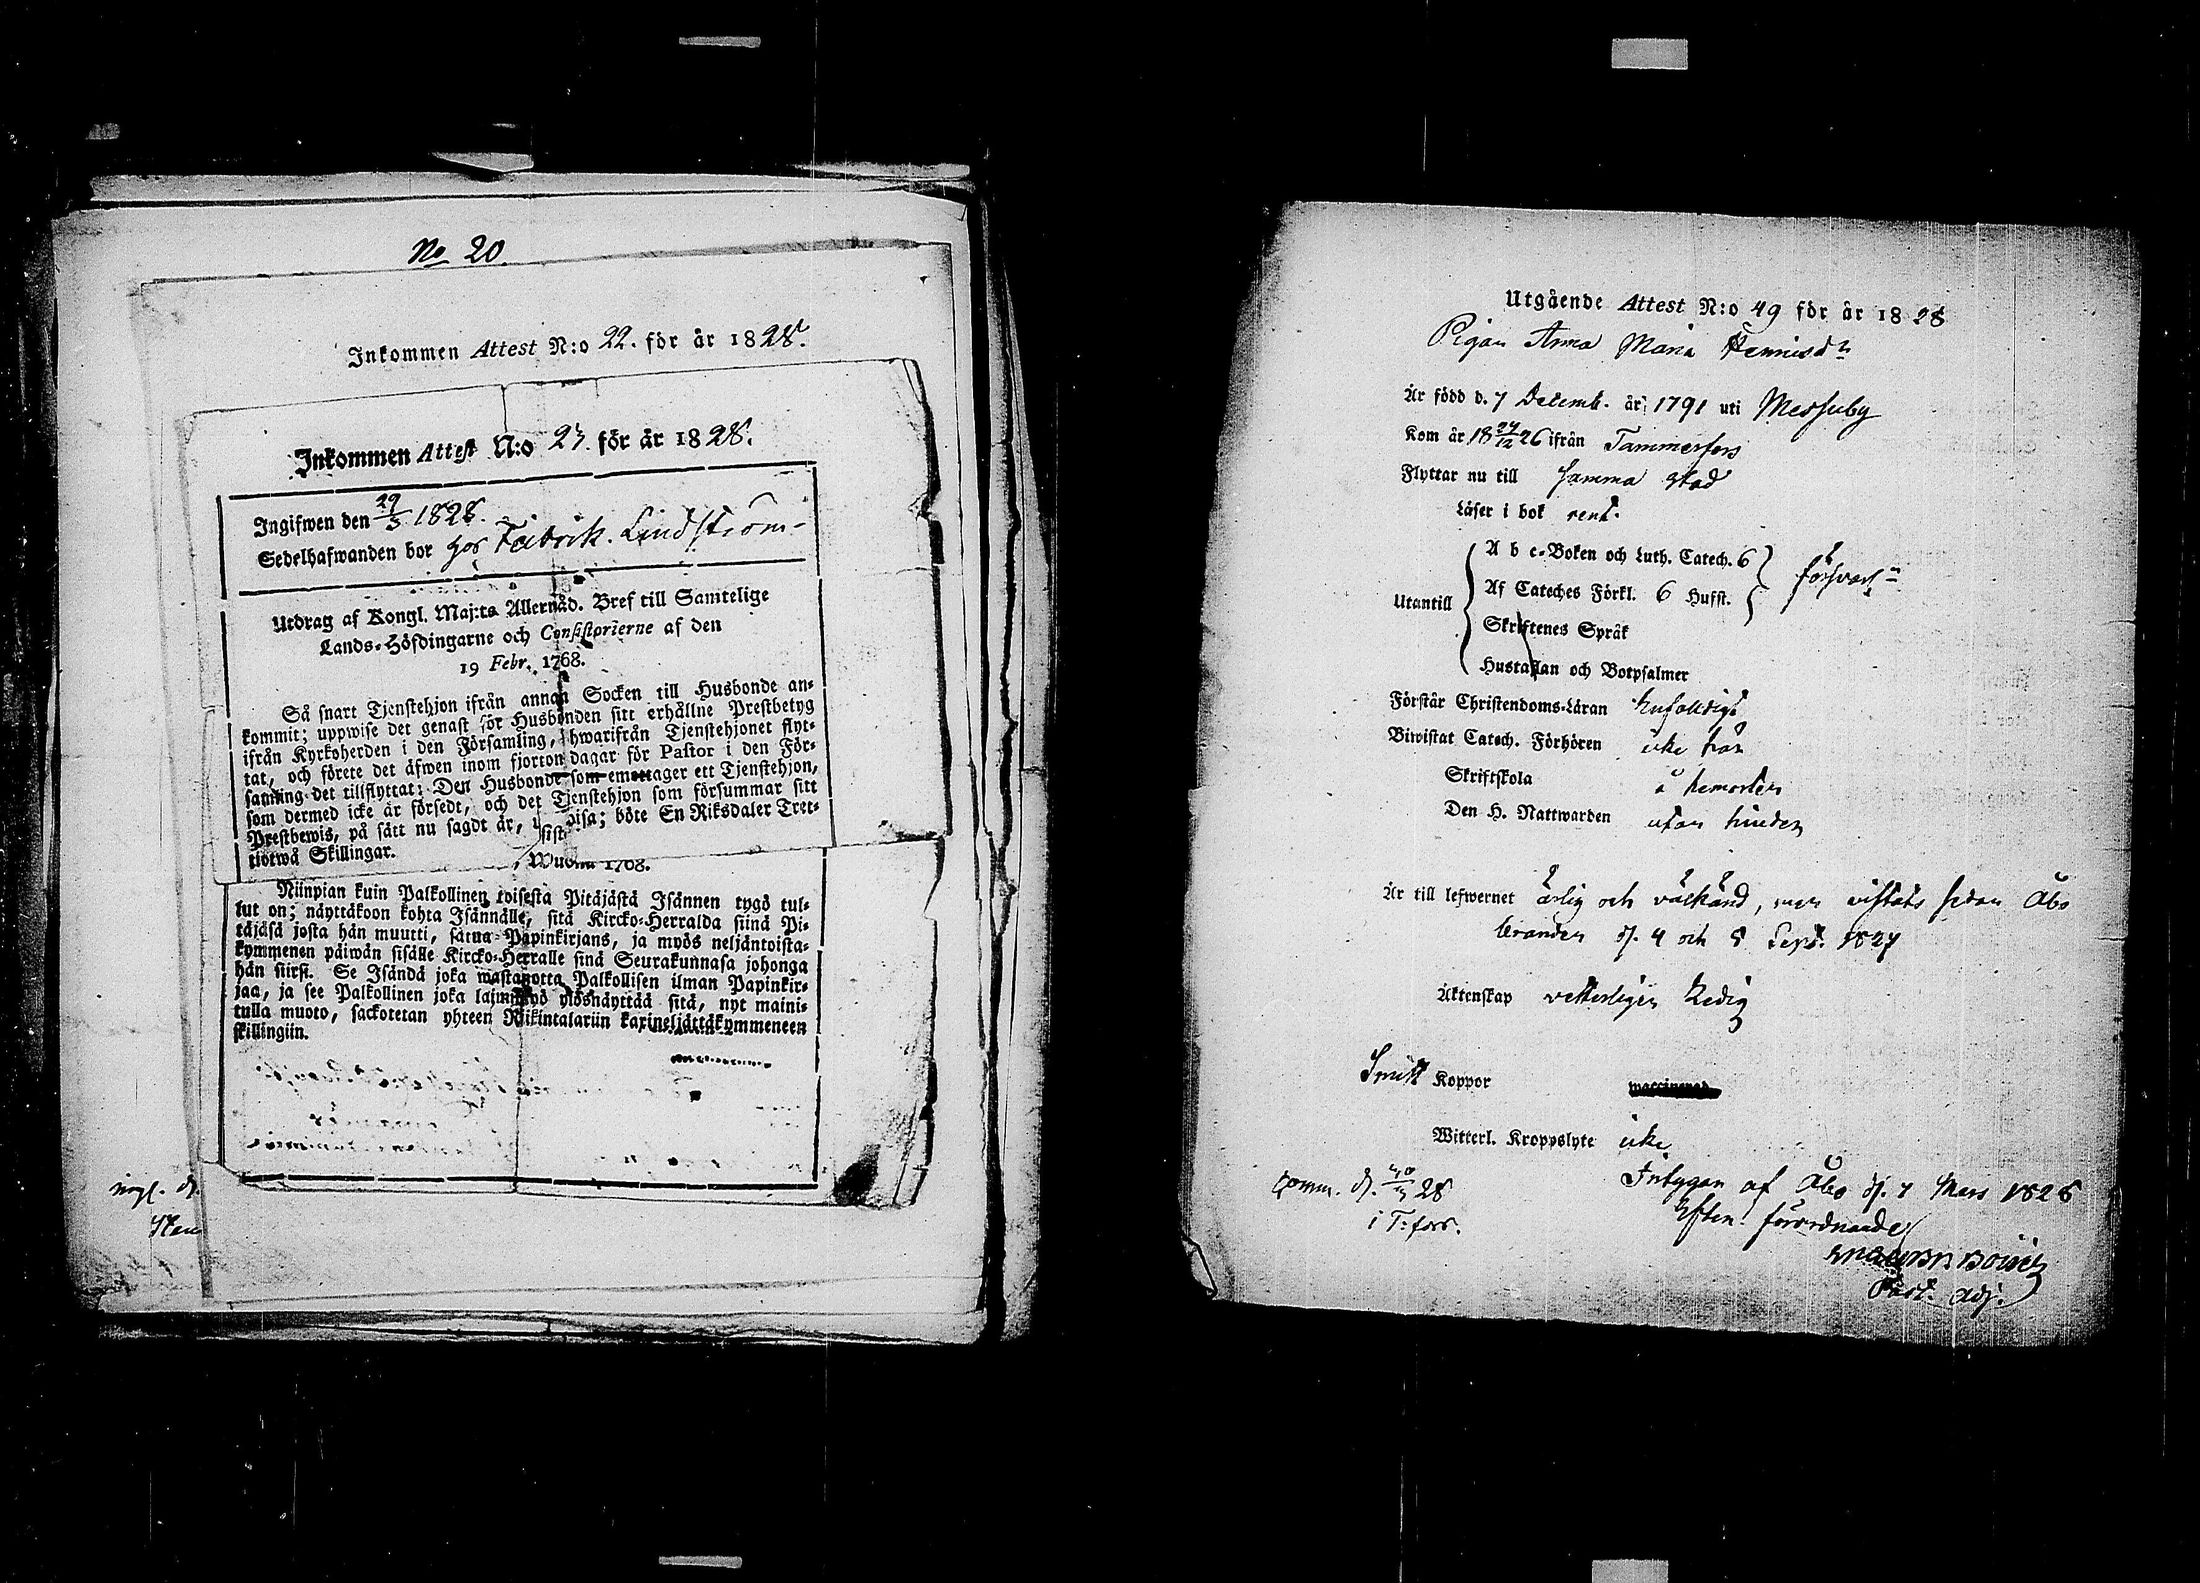 No 20.
Inkommen Attest N:o 22. för år 1828.
Inkommen Attest N:o 23. för år 1828.
Ingifwen den 29/3 1828.
Sedelhafwanden bor hos Fabrik. Lindström
Utdrag af Kongl. Maj:ts Allernåd. Bref till Samtelige
Lands-Höfdingarne och Consistorierne af den
19 Febr. 1768.
Så snart Tjenstehjon ifrån annan Socken till Husbonde an-
kommit; uppwise det genast för Husbonden sitt erhållne Prestbetyg
ifrån Kyrkoherden i den Församling, hwarifrån Tjenstehjonet flyt-
tat, och förete det äfwen inom fjorton dagar för Pastor i den För-
samling det tillflyttat: Den Husbonde som emottager ett Tjenstehjon,
som dermed icke är försedt, och det Tjenstehjon som försummar sitt
Prestbewis, på sätt nu sagdt är, wisa; böte En Riksdaler Tret-
tiotwå Skillingar.
Wuonna 1768.
Niinpian kuin Palkollinen toisesta Pitäjästä Isännen tygö tul-
lut on; näyttäkoon kohta Isännälle, sitä Kircko-Herralda siinä Pi-
täjäsä josta hän muutti, satua Papinkirjans, ja myös neljäntoista-
kymmenen päiwän sisälle Kircko-Herralle sinä Seurakunnasa johonga
hän siirsi. Se Isändä joka wastanotta Palkollisen ilman Papinkir-
jaa, ja see Palkollinen joka laimin lyö ylösnäyttää sitä, nyt maini-
tulla muoto, sackotetan yhteen Riikintalariin kaxineljättäkymmeneen
skillingiin.
Utgående Attest N:o 49 för år 1828
Pigan Anna Maria Hennisdr
Är född d. 7 Decemb. år 1791 uti Messuby
Kom år 18 24/12 26 ifrån Tammerfors
Flyttar nu till samma stad
Läser i bok rent.
A b c-Boken och Luth. Catech. 6
Utantill Af Cateches Förkl. 6 Hufst. försvarl:n
Skriftenes Språk
Hustaflan och Botpsalmer
Förstår Christendoms-Läran enfaldigt
Biwistat Catech. Förhören icke här
Skriftskola å hemorten
Den H. Nattwarden utan hinder
Är till lefwernet ärlig och välkänd, som vistats sedan Åbo
branden d. 4 och 5 Sept. 1827
Äktenskap vetterligen Ledig
Smitt Koppor
Witterl. Kroppslyte icke
Intygan af Åbo d. 7 Mars 1828
Efter förordnande
komm. d. 28
i T:fors.
Past. adj.